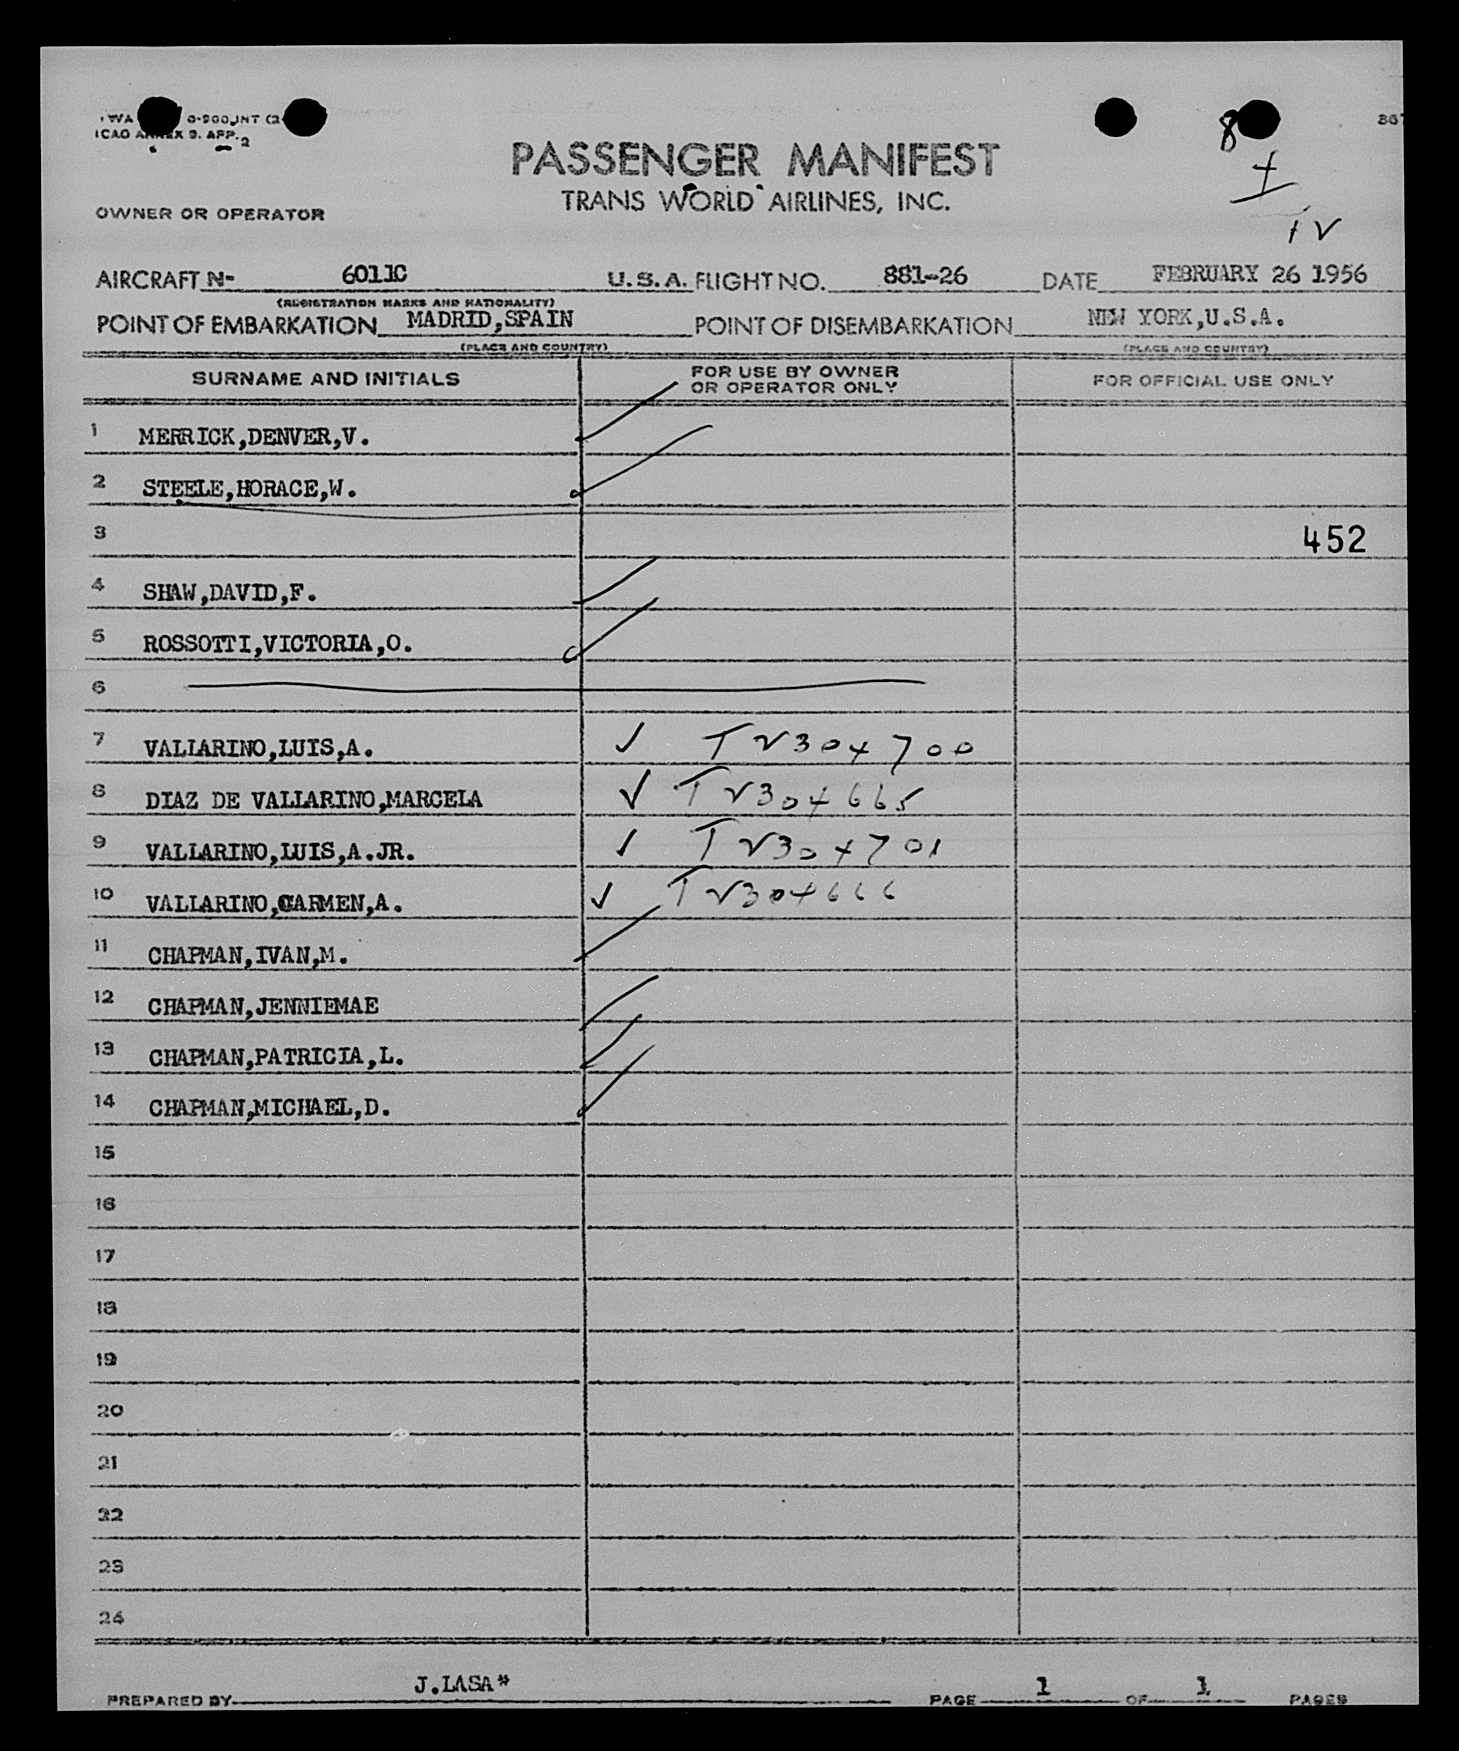 ICAO ANNEX 9. APP. 2
8
PASSENGER MANIFEST
TRANS WORLD AIRLINES, INC.
OWNER OR OPERATOR
AIRCRAFT N- 6011C U.S.A. FLIGHT NO. 881-26 DATE FEBRUARY 26 1956
(REGISTRATION MARKS AND NATIONALITY)
POINT OF EMBARKATION MADRID,SPAIN POINT OF DISEMBARKATION NEW YORK,U.S.A.
(PLACE AND COUNTRY) (PLACE AND COUNTRY)
SURNAME AND INITIALS FOR USE BY OWNER OR OPERATOR ONLY FOR OFFICIAL USE ONLY
1 MERRICK,DENVER,V.
2 STEELE,HORACE,W.
3 452
4 SHAW,DAVID,F.
5 ROSSOTTI,VICTORIA,O.
6
7 VALLARINO,LUIS,A. ✓ TV304700
8 DIAZ DE VALLARINO,MARCELA ✓ TV304665
9 VALLARINO,LUIS,A.JR. ✓ TV304701
10 VALLARINO,CARMEN,A. ✓ TV304666
11 CHAPMAN,IVAN,M.
12 CHAPMAN,JENNIEMAE
13 CHAPMAN,PATRICIA,L.
14 CHAPMAN,MICHAEL,D.
15
16
17
18
19
20
21
22
23
24
PREPARED BY J.LASA* PAGE 1 OF 1 PAGES